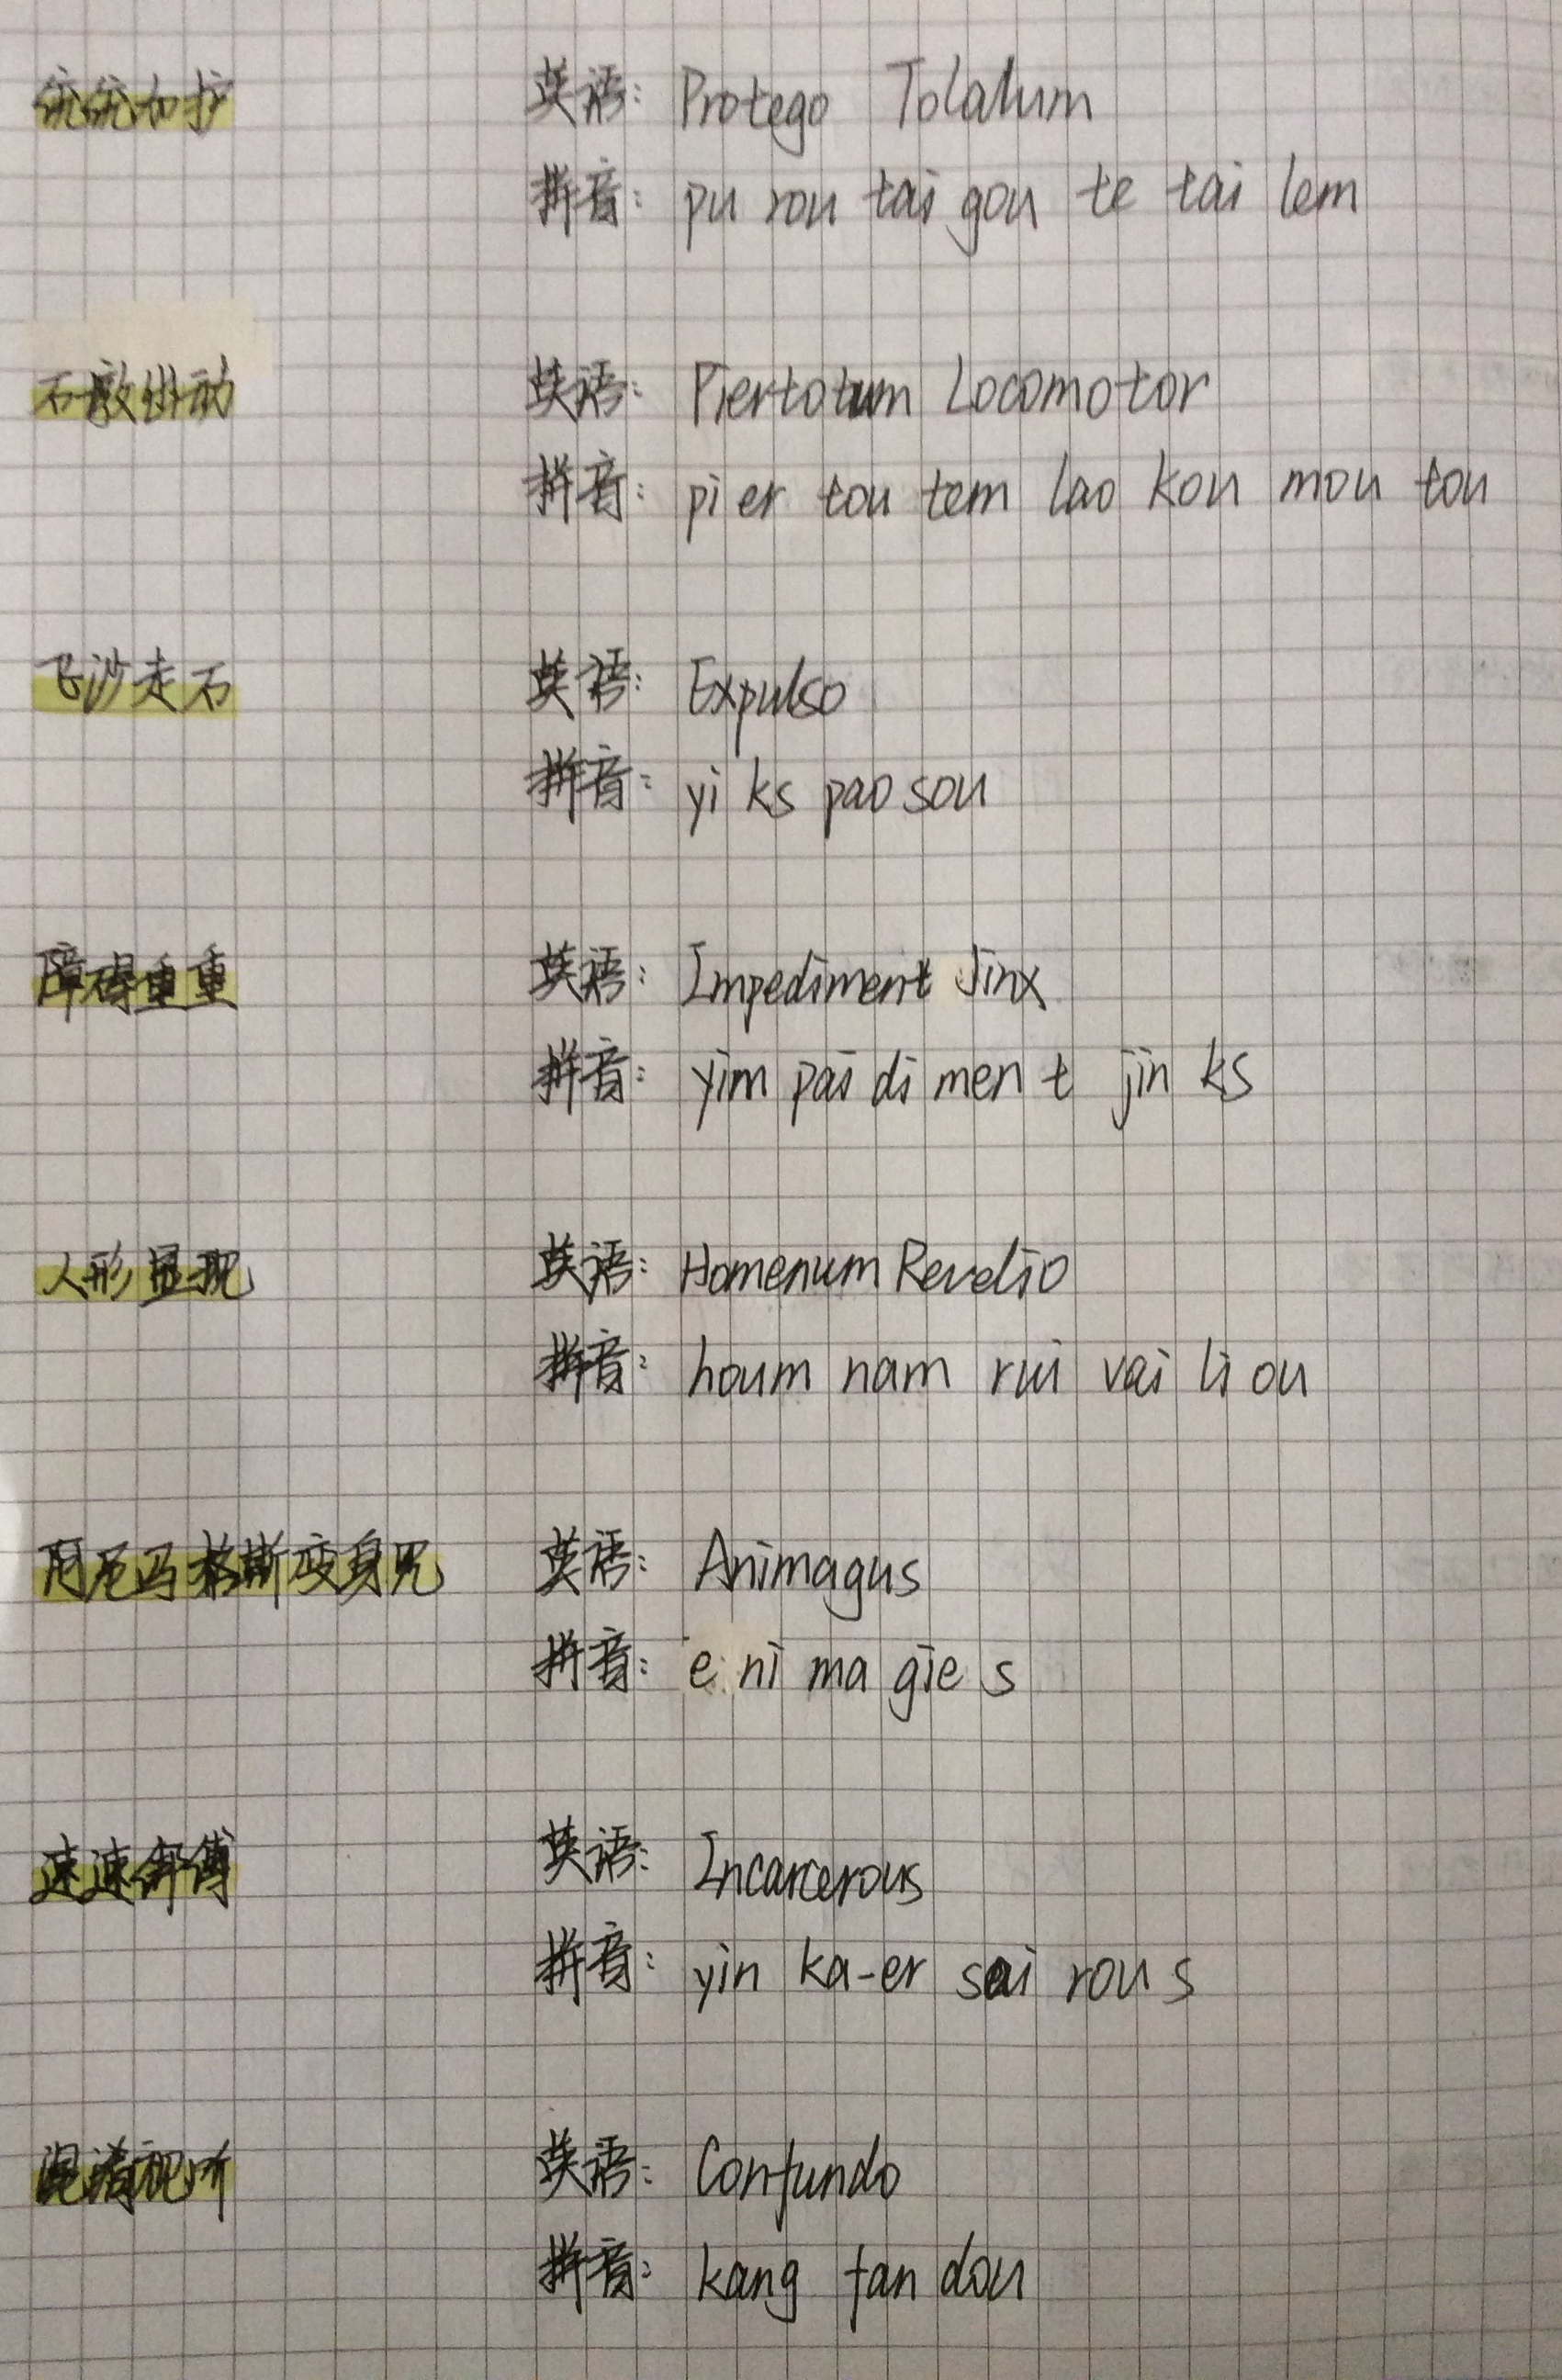 统统加护 英语: Protego Tolalum
拼音: pu rou tai gou te tai lem
石墩出动 英语: Piertotum Locomotor
拼音: pi er tou tem lao kou mou tou
飞沙走石 英语: Expulso
拼音: yi ks pao sou
障碍重重 英语: Impediment Jinx
拼音: yim pai di men t jin ks
人形显现 英语: Homenum Revelio
拼音: houm nam rui vai li ou
阿尼马格斯变身咒 英语: Animagus
拼音: e ni ma gie s
速速绑缚 英语: Incarcerous
拼音: yin ka-er sai rou s
混淆视听 英语: Confundo
拼音: kang fan dou